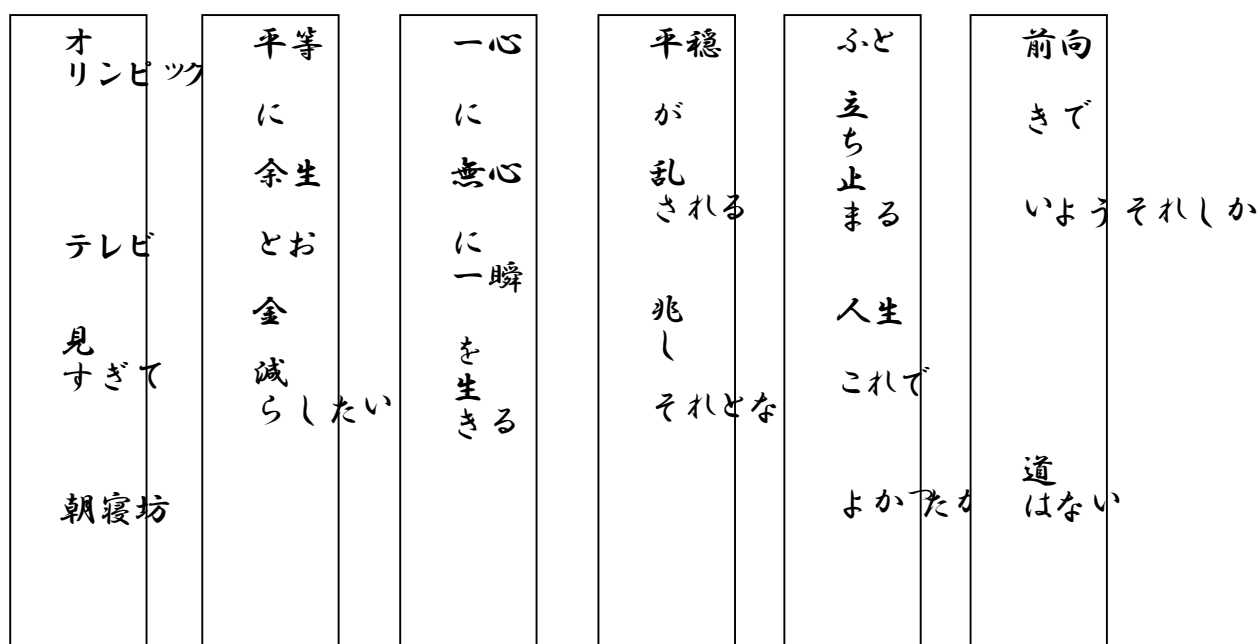 前向きでいようそれしか道はない
ふと立ち止まる人生これでよかったか
平穏が乱される兆しそれとな
一心に無心に一瞬を生きる
平等に余生とお金減らしたい
オリンピックテレビ見すぎて朝寝坊